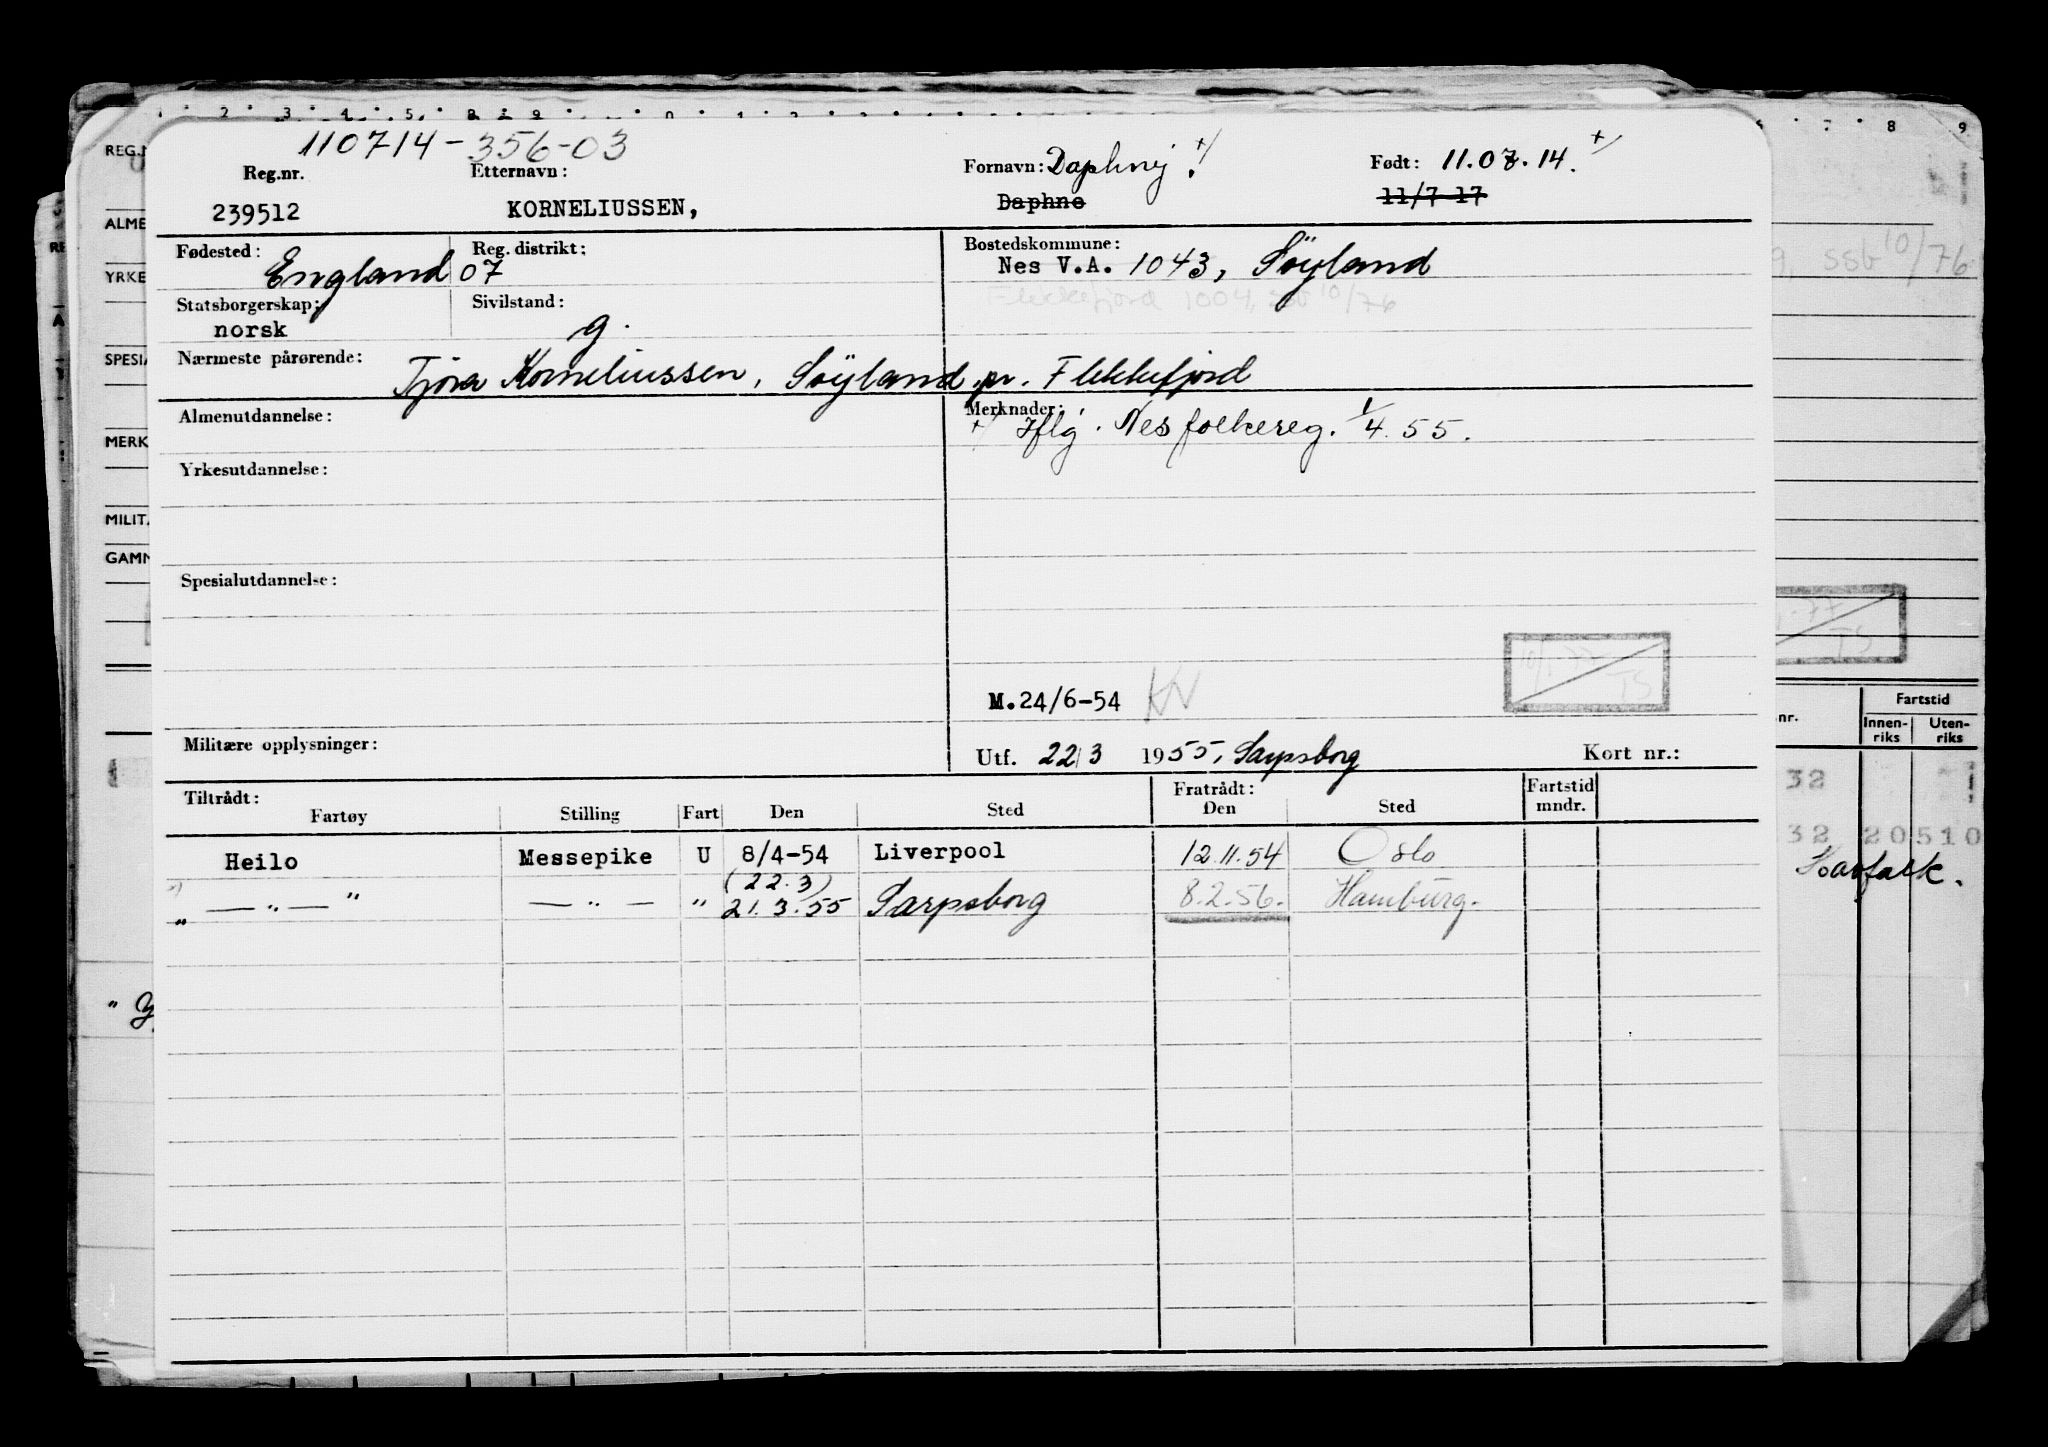 1 2 3 4 5 8 9 0 1 2 3 4 7 8 9
110714-356-03
REG.N
Reg.nr. Etternavn: Fornavn: Daphnij ! +/ Født: 11.07.14. +/
239512 KORNELIUSSEN, Daphne 11/7-17
ALME
Fødested: England Reg. distrikt: 07 Bostedskommune: Nes V.A. 1043, Söyland
YRKE
9, SSB 10/76
Flekkefjord 1004, SSB 10/76
Statsborgerskap: norsk Sivilstand: g.
SPESIA
Nærmeste pårørende: Tjora Korneliussen, Söyland pr. Flekkefjord
Almenutdannelse: Merknader:
+/ Iflg. Nes folkereg. 1/4.55.
MERK
Yrkesutdannelse:
MILIT.
GAMM
Spesialutdannelse:
10/1-77 TS
-77 TS
M.24/6-54 KV
Militære opplysninger: Utf. 22/3 1955, Sarpsborg Kort nr.:
nr. Fartstid
Innen-riks Uten-riks
Tiltrådt: Fratrådt: Fartstid mndr.
Fartøy Stilling Fart Den Sted Den Sted
32
Heilo Messepike U 8/4-54 Liverpool 12.11.54 Oslo
32 20510
Havfalk.
" — " — " — " — " (22.3) 21.3.55 Sarpsborg 8.2.56. Hamburg.